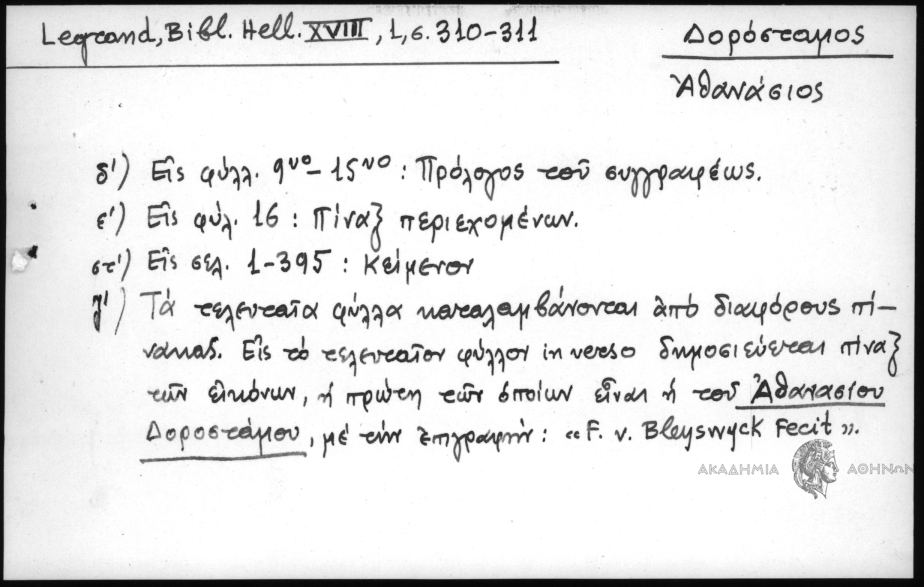 Legrand, Bibl. Hell. XVIII, 1, σ. 310-311
Δορόσταμος
Ἀθανάσιος
δ') Εἰς φύλλ. 9νο - 15νο : Πρόλογος τοῦ συγγραφέως.
ε') Εἰς φύλ. 16 : Πίναξ περιεχομένων.
στ') Εἰς σελ. 1-395 : Κείμενον
ζ') Τά τελευταῖα φύλλα καταλαμβάνονται ἀπό διαφόρους πί-
νακας. Εἰς τό τελευταῖον φύλλον in verso δημοσιεύεται πίναξ
τῶν εἰκόνων, ἡ πρώτη τῶν ὁποίων εἶναι ἡ τοῦ Ἀθανασίου
Δοροστάμου, μέ τήν ἐπιγραφήν: «F. v. Bleyswyck Fecit».
ΑΚΑΔΗΜΙΑ ΑΘΗΝΩΝ